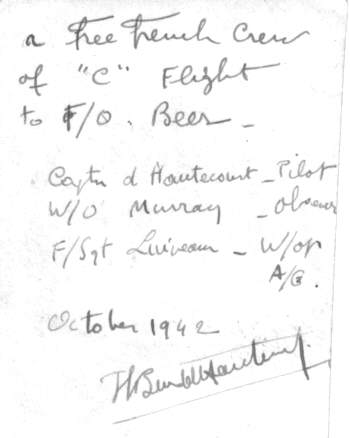 a Free French Crew
of "C" Flight
to F/O. Beer -
Captn d Hautecourt - Pilot
W/O Murray - Observer
F/Sgt - W/op
A/G.
October 1942